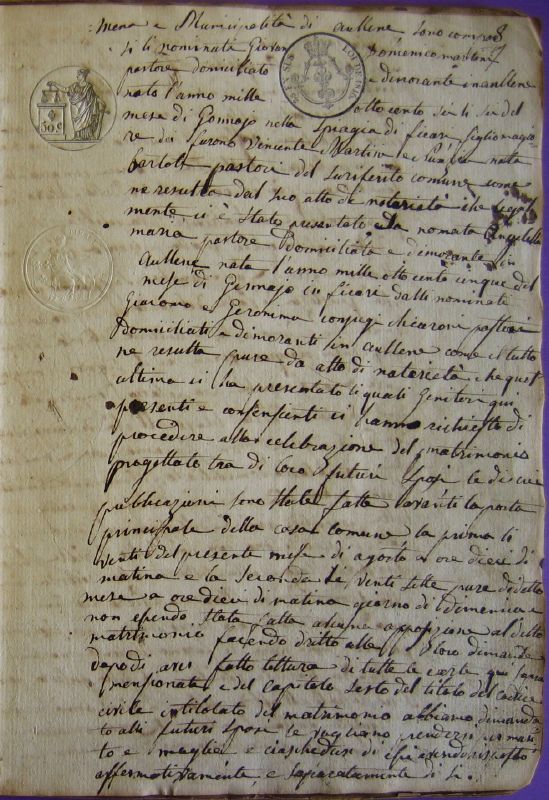 mena e Municipalità di aullene sono compar
si li nominati Giovan Domenico martini
pastore domiciliato e dimorante in aullene
nato l'anno mille otto cento sei li sei del
mese di Gennajo nella Spiagia di ficari figlio maggio
re dei furono Vincente Martini e
pastori del suriferito comune come
ne resulta dal suo atto di notorietà che legal
mente ci è stato presentato la nomata Angela
maria pastore domiciliata e dimorante in
aullene nata l'anno mille otto cento cinque del
mese di Gennajo in ficari dalli nominati
Giacomo e Geronima conjugi chiaroni pastori
domiciliati e dimoranti in aullene come il tutto
ne resulta pure da atto di notorietà che quest
ultima ci ha presentato li quali Genitori qui
presenti e consensienti ci hanno richiesto di
procedere alla celebrazione del matrimonio
progettato tra di loro futuri sposi le di cui
pubblicazioni sono state fatte avanti la porta
principale della casa comune, la prima li
venti del presente mese di agosto a ore dieci di
matina e la seconda li venti sette pure di detto
mese a ore dieci di matina giorno di domenica e
non essendo stata fatta alcuna opposizione al detto
matrimonio facendo dritto alla loro dimanda
dopo di aver fatto lettura di tutte le carte qui sopra
mensionate e del capitolo sesto del titolo del codice
civile intitolato del matrimonio abbiamo dimanda
to alli futuri sposi se vogliano prendersi per mari
to e moglie e ciascheduno di essi avendo risposto
affermativamente e separatamente di si